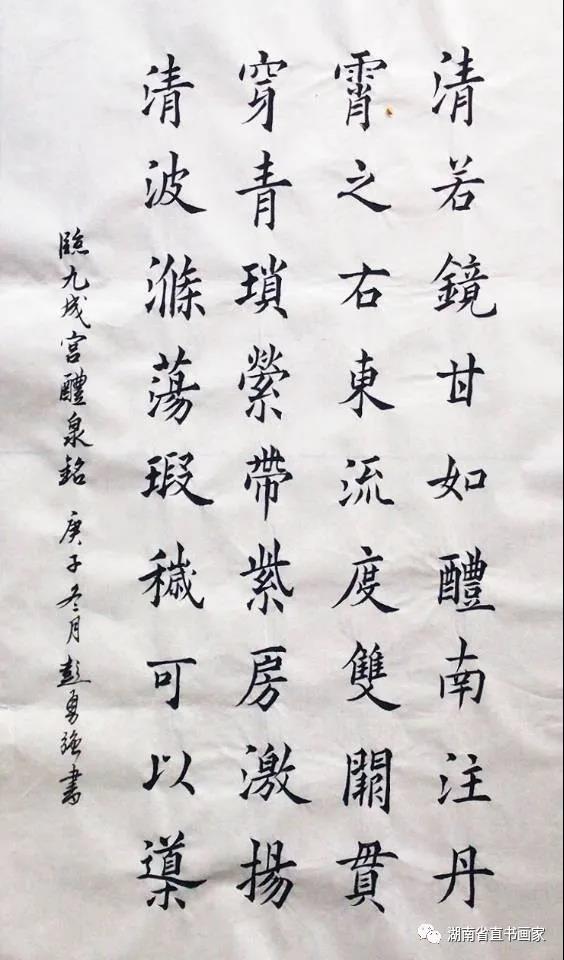 清若鏡甘如醴南注丹
霄之右東流度雙闕貫
穿青瑣縈帶紫房激揚
清波滌蕩瑕穢可以導
臨九成宮醴泉銘 庚子冬月彭勇強書
湖南省直书画家